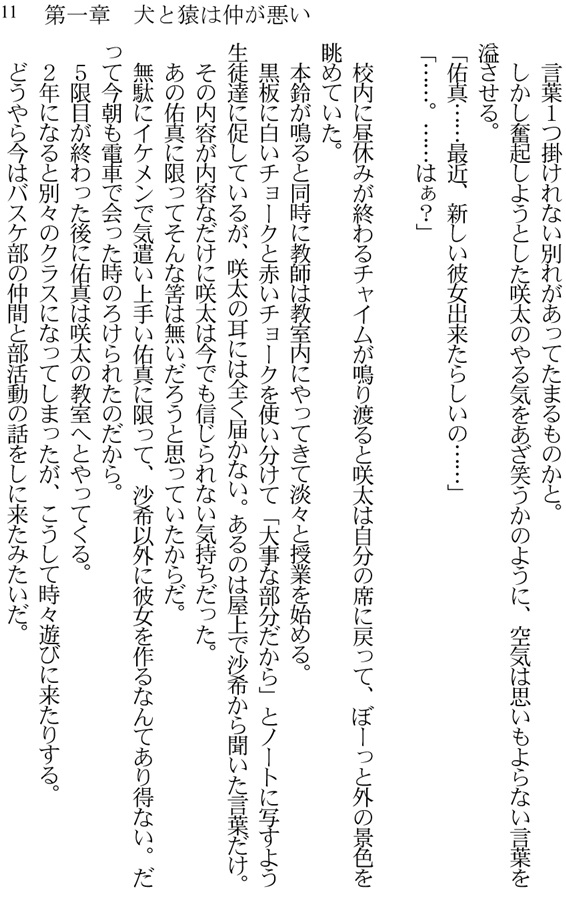 11　第一章　犬と猿は仲が悪い
　言葉１つ掛けれない別れがあってたまるものかと。
　しかし奮起しようとした咲太のやる気をあざ笑うかのように、空気は思いもよらない言葉を
溢させる。
「佑真……最近、新しい彼女出来たらしいの……」
「……。……はぁ？」
　校内に昼休みが終わるチャイムが鳴り渡ると咲太は自分の席に戻って、ぼーっと外の景色を
眺めていた。
　本鈴が鳴ると同時に教師は教室内にやってきて淡々と授業を始める。
　黒板に白いチョークと赤いチョークを使い分けて「大事な部分だから」とノートに写すよう
生徒達に促しているが、咲太の耳には全く届かない。あるのは屋上で沙希から聞いた言葉だけ。
　その内容が内容なだけに咲太は今でも信じられない気持ちだった。
　あの佑真に限ってそんな筈は無いだろうと思っていたからだ。
　無駄にイケメンで気遣い上手い佑真に限って、沙希以外に彼女を作るなんてあり得ない。だ
って今朝も電車で会った時のろけられたのだから。
　５限目が終わった後に佑真は咲太の教室へとやってくる。
　２年になると別々のクラスになってしまったが、こうして時々遊びに来たりする。
　どうやら今はバスケ部の仲間と部活動の話をしに来たみたいだ。